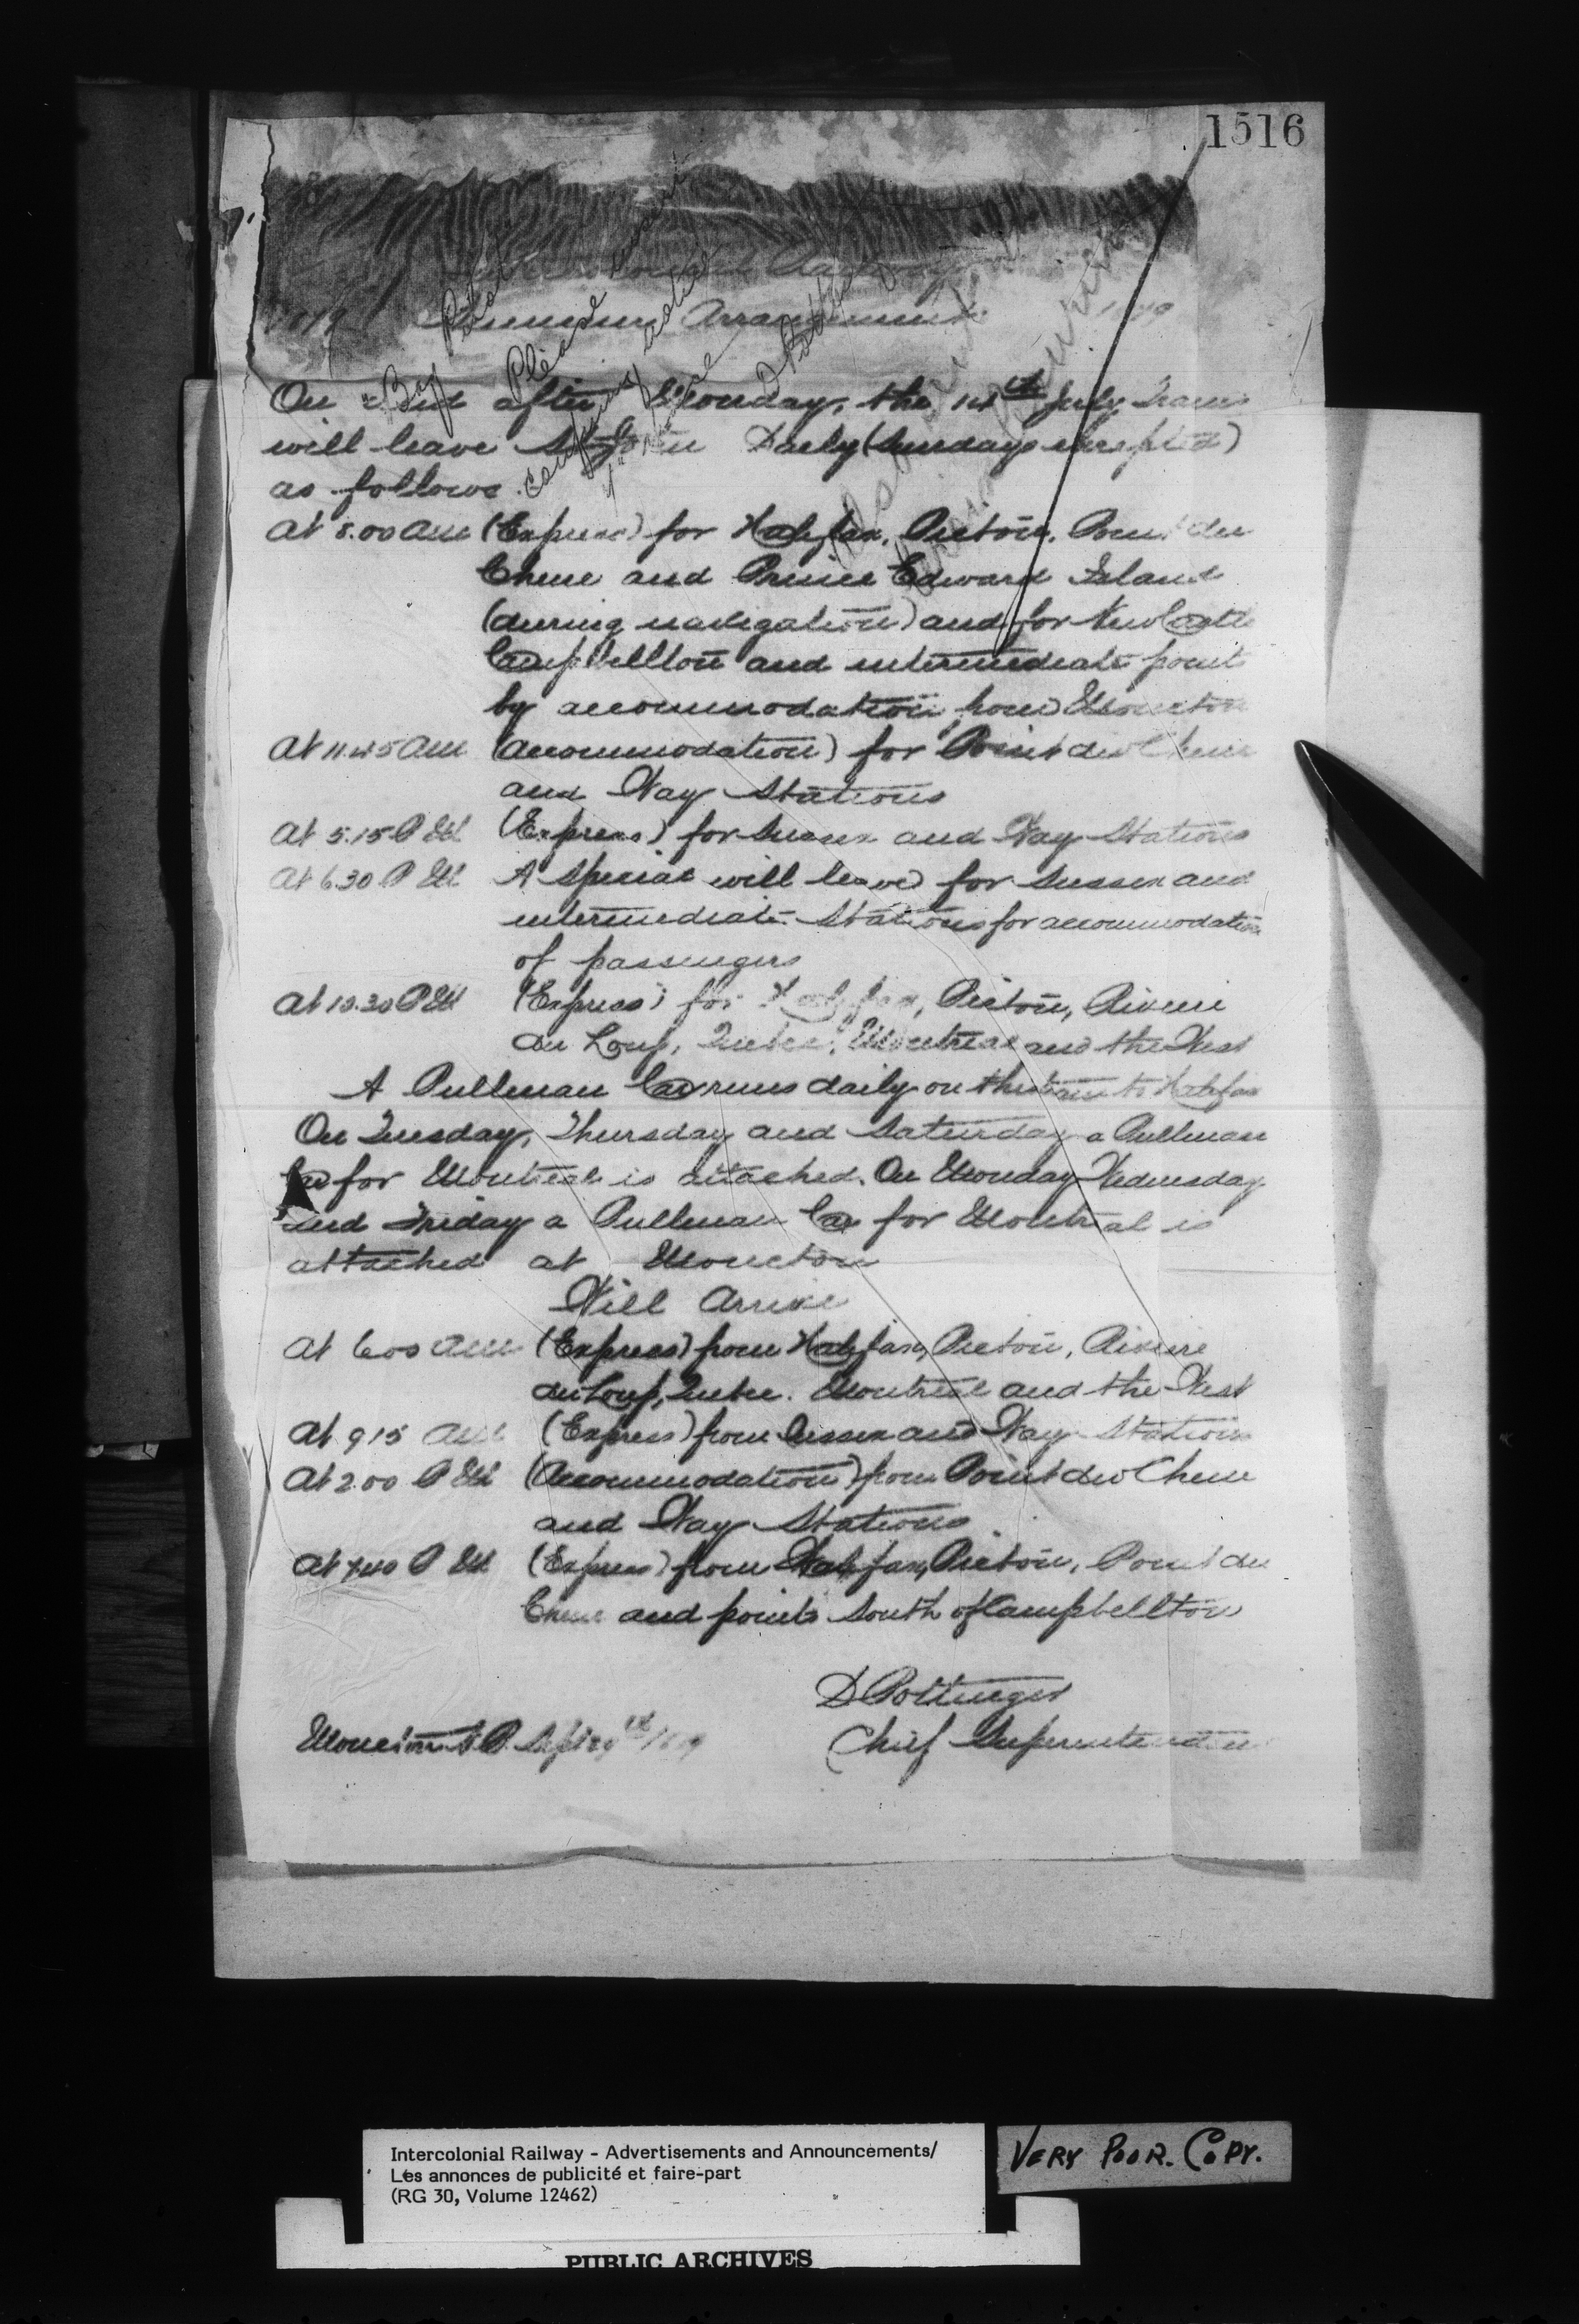 1516
Intercolonial Railway
1879 Summer Arrangement 1879
On and after Monday, the 14th July Trains
will leave St John Daily (Sundays excepted)
as follows.
At 8.00 AM (Express) for Halifax, Pictou, Point du
Chene and Prince Edward Island
(during navigation) and for NewCastle
Campbellton and intermediate points
by accommodation from Moncton
At 11.45 AM (Accommodation) for Point du Chene
and Way Stations
At 5.15 P M (Express) for Sussex and Way Stations
At 6.30 P M A Special will leave for Sussex and
intermediate Stations for accommodation
of passengers
At 10.30 P M (Express) for Halifax, Pictou, Riviere
du Loup, Quebec, Montreal and the West
A Pullman Car runs daily on this train to Halifax
On Tuesday, Thursday and Saturday a Pullman
Car for Montreal is attached. On Monday Wednesday
and Friday a Pullman Car for Montreal is
attached at Moncton
Will Arrive
At 6.00 AM (Express) from Halifax, Pictou, Riviere
du Loup, Quebec. Montreal and the West
At 9 15 AM (Express) from Sussex and Way Stations
At 2.00 P M (Accommodation) from Point du Chene
and Way Stations
At 7.40 P M (Express) from Halifax, Pictou, Point du
Chene and points South of Campbellton
D Pottinger
Moncton N.B. 1879
Chief Superintendent
Please
Intercolonial Railway - Advertisements and Announcements/
Les annonces de publicité et faire-part
(RG 30, Volume 12462)
VERY POOR. COPY.
PUBLIC ARCHIVES